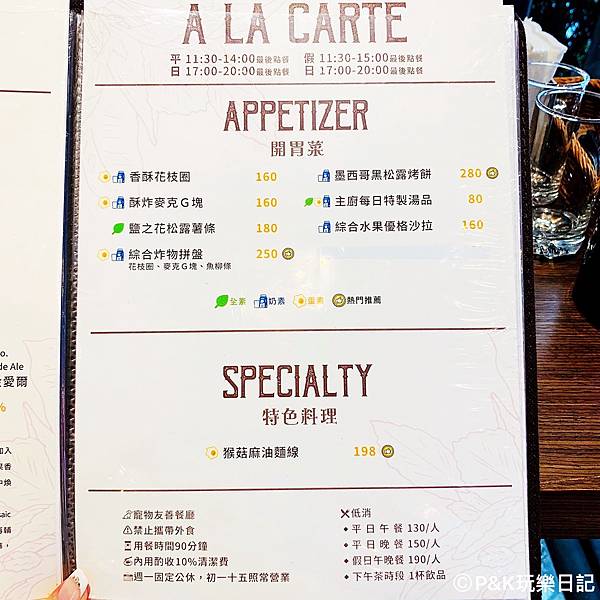 A LA CARTE
平 11:30-14:00最後點餐 假 11:30-15:00最後點餐
日 17:00-20:00最後點餐 日 17:00-20:00最後點餐
APPETIZER
開胃菜
香酥花枝圈 160
墨西哥黑松露烤餅 280
酥炸麥克G塊 160
主廚每日特製湯品 80
鹽之花松露薯條 180
綜合水果優格沙拉 160
綜合炸物拼盤 250
花枝圈、麥克G塊、魚柳條
全素 奶素 蛋素 熱門推薦
SPECIALTY
特色料理
猴菇麻油麵線 198
寵物友善餐廳
禁止攜帶外食
用餐時間90分鐘
內用酌收10%清潔費
週一固定公休，初一十五照常營業
低消
平日午餐 130/人
平日晚餐 150/人
假日午晚餐 190/人
下午茶時段 1杯飲品
o.
de Ale
愛爾
%
加入
果香
中煥
saic
©P&K玩樂日記